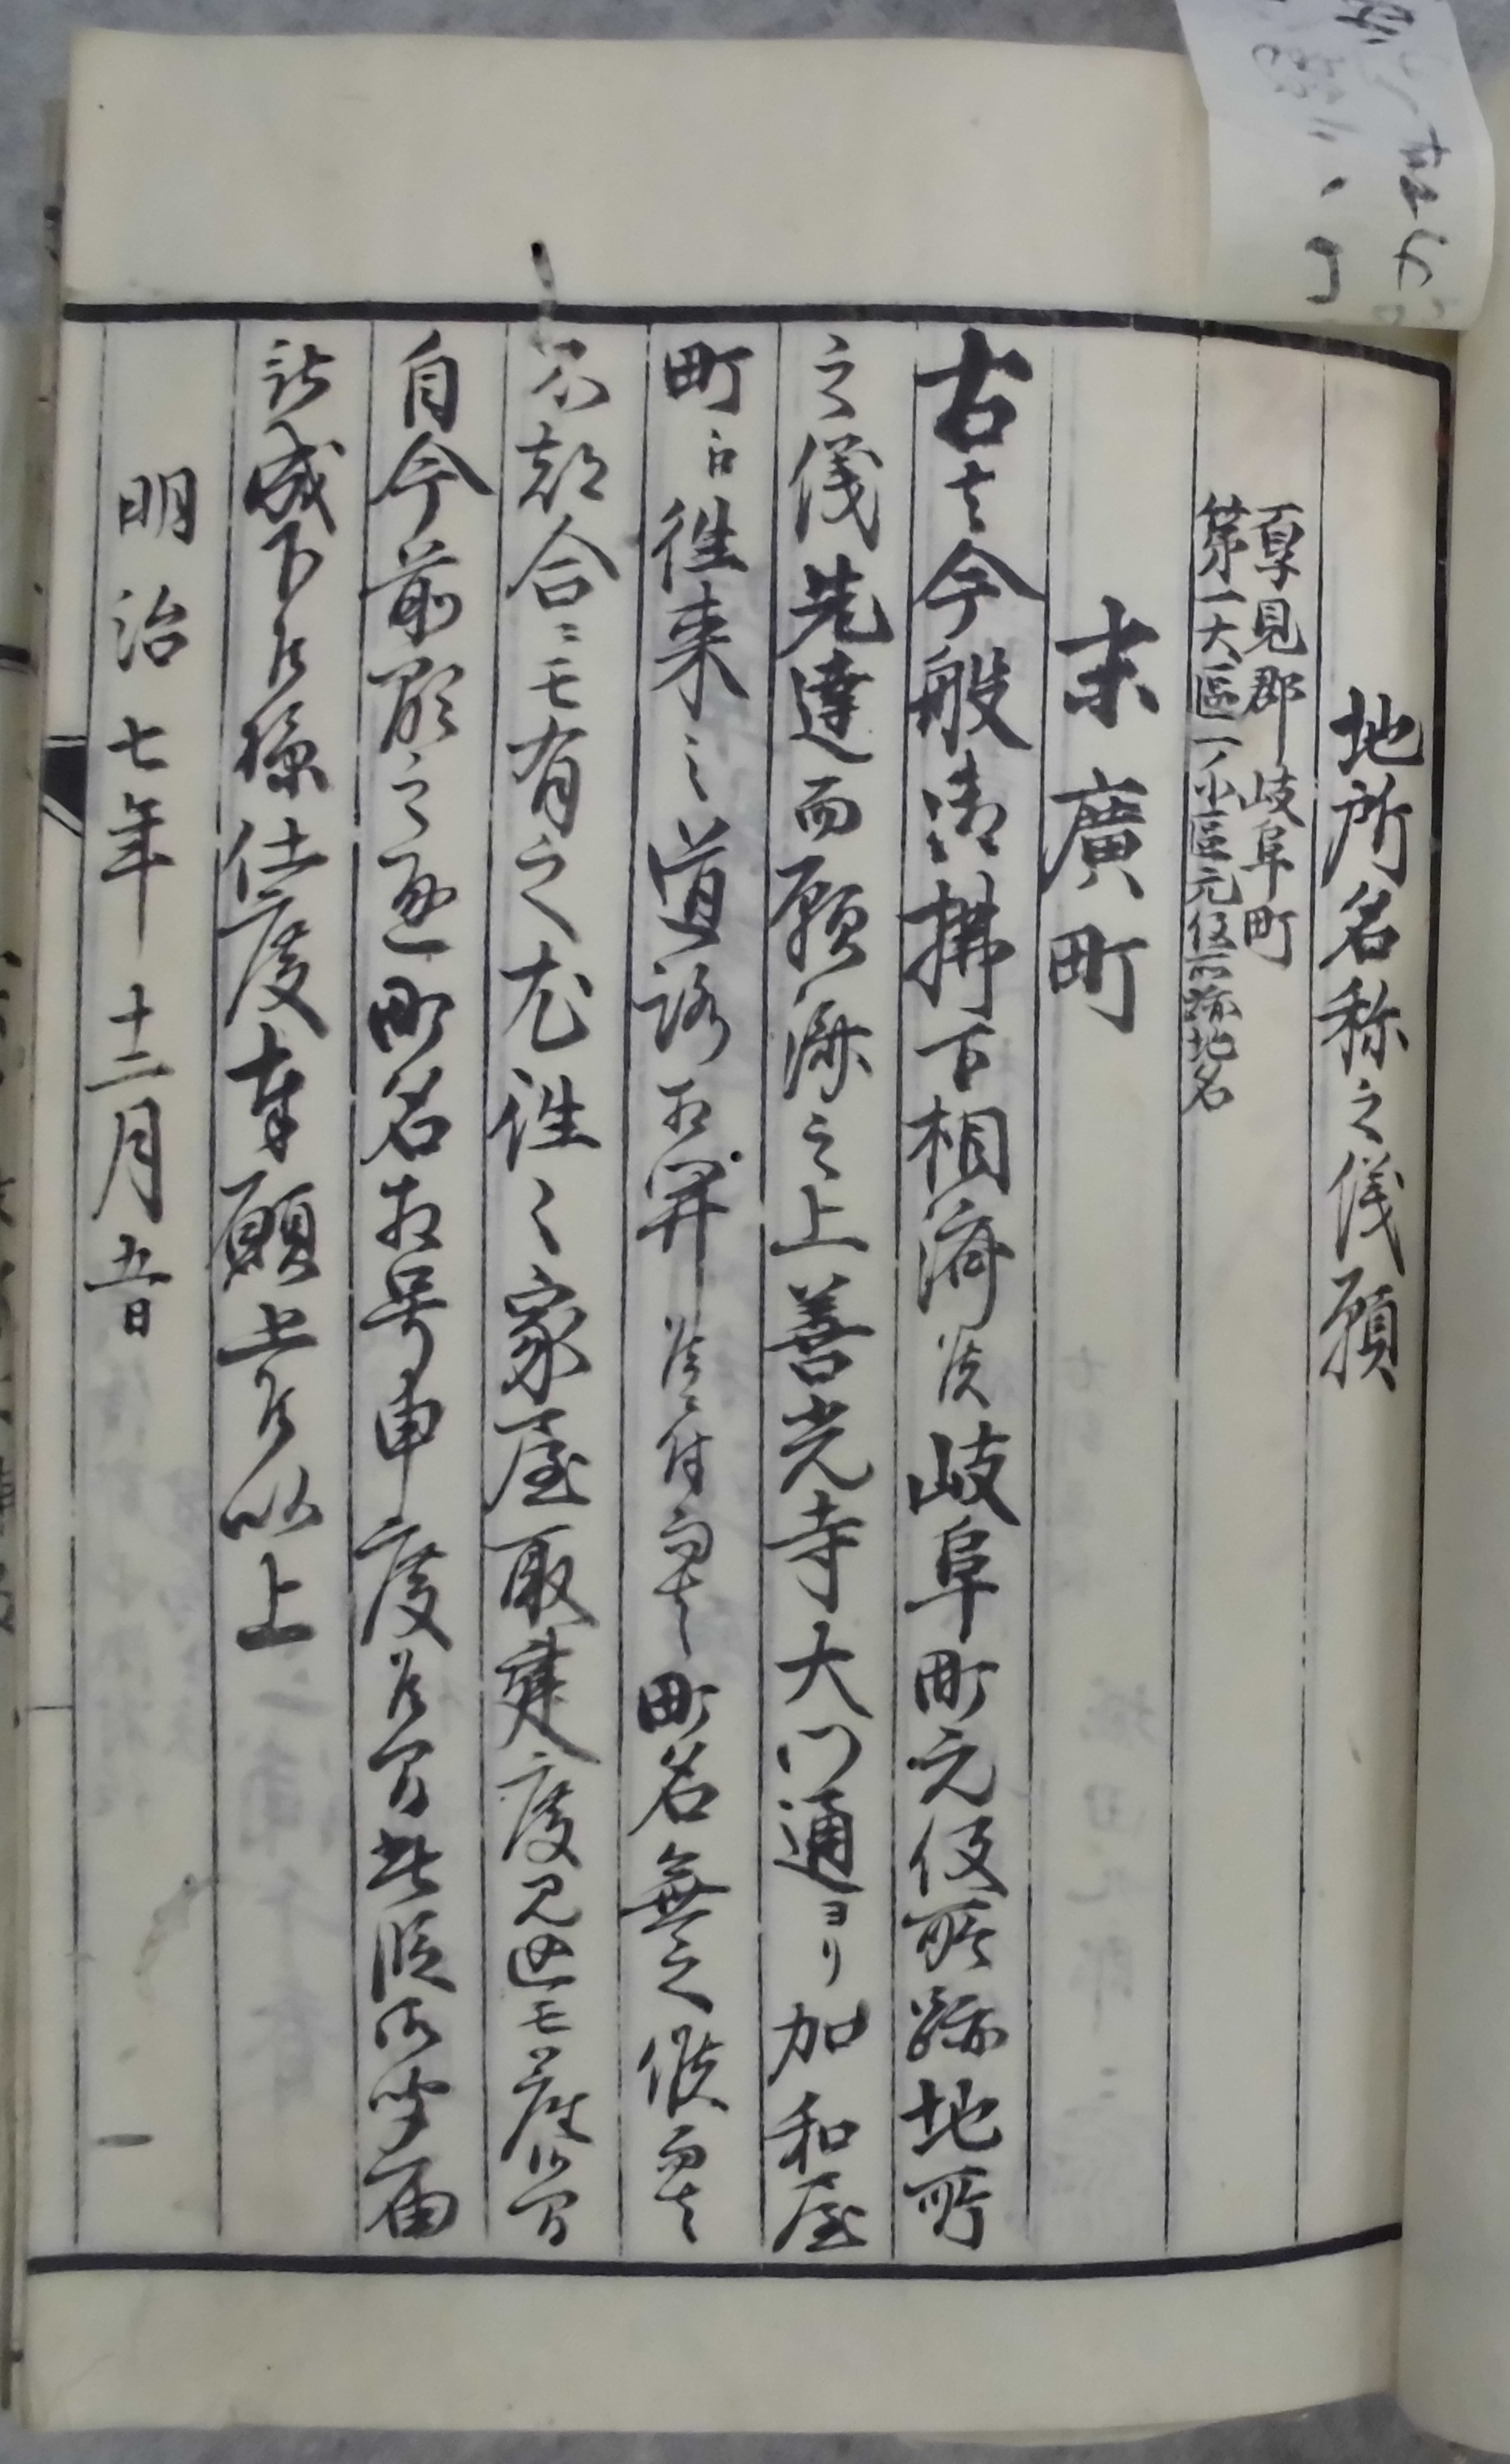 地所名称之儀願
厚見郡岐阜町
第一大區一ノ小區元役所跡地名
末廣町
右者今般御拂下相済候岐阜町元役所跡地所
之儀先達而願済之上善光寺大門通ヨリ加和屋
町江往来之道路相開候ニ付而者町名無之候而者
不都合ニモ有之尤往々家屋取建度見込モ有之候間
自今前顕之通町名相号申度候間此段御聞届
被成下候様仕度奉願上候以上
明治七年十二月五日